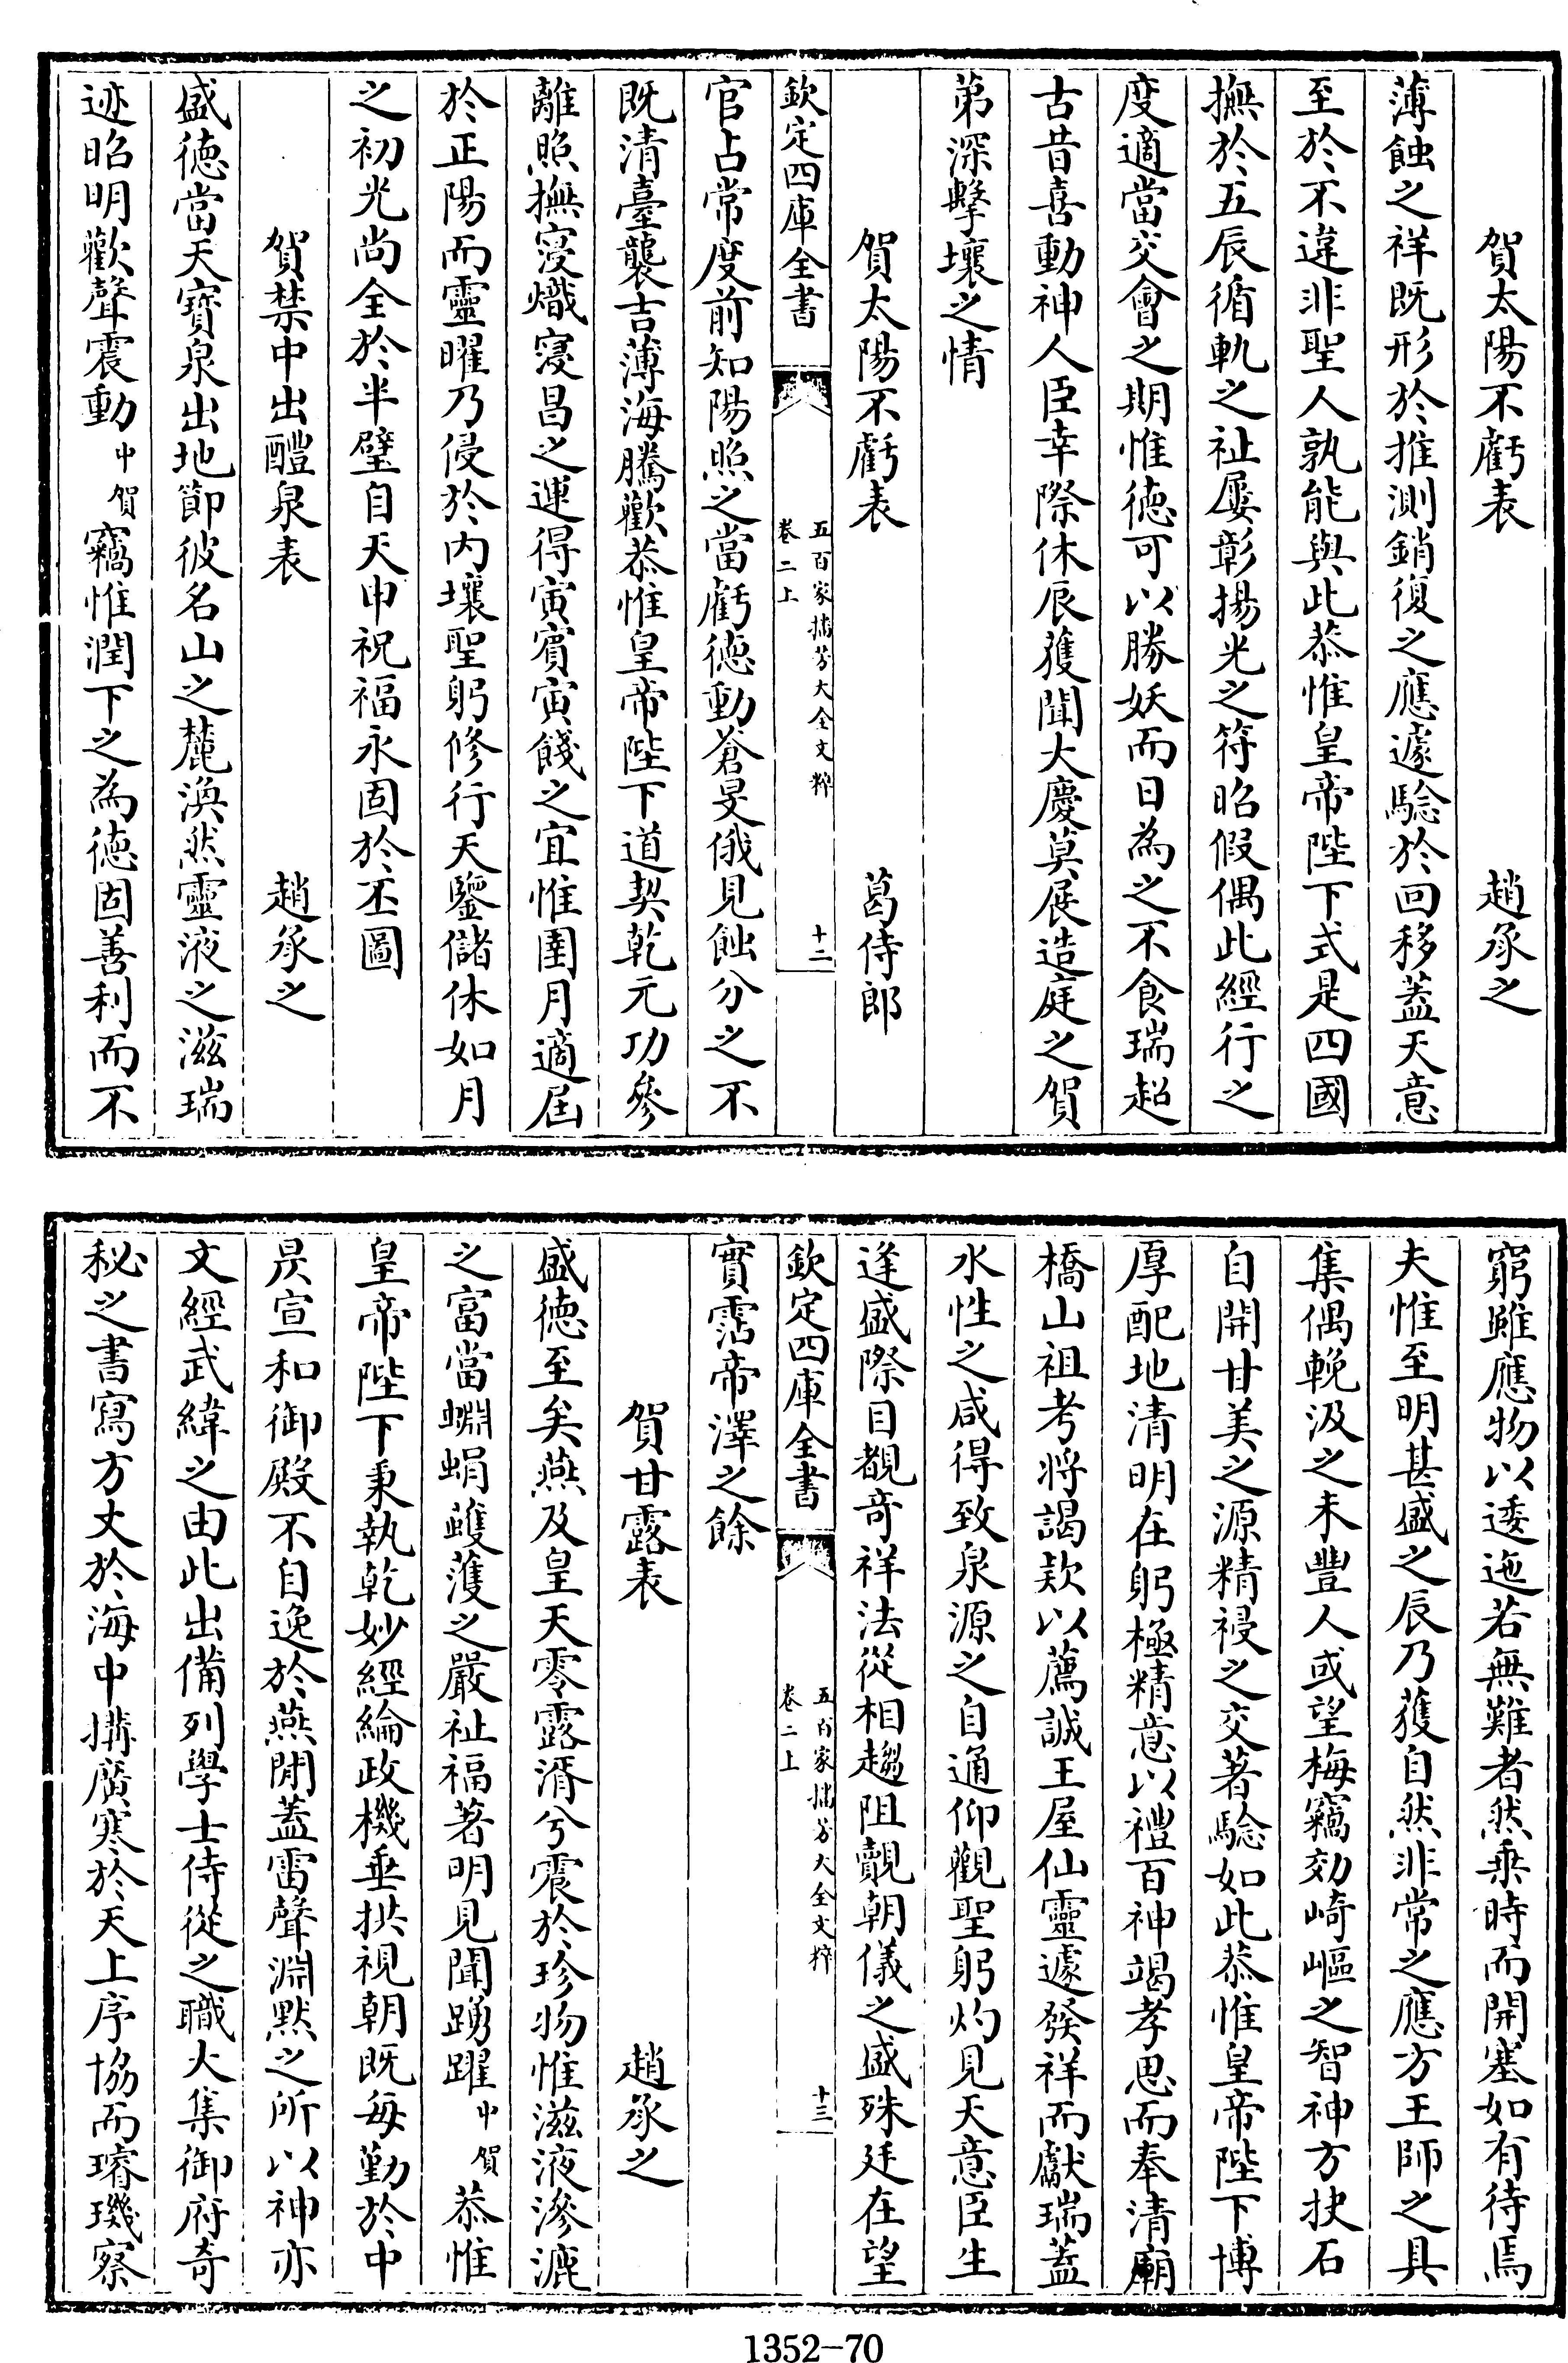 賀太陽不虧表　趙承之
薄蝕之祥既形於推測銷復之應遽驗於回移蓋天意
至於不違非聖人孰能與此恭惟皇帝陛下式是四國
撫於五辰循軌之祉屢彰揚光之符昭假偶此經行之
度適當交會之期惟徳可以勝妖而日為之不食瑞超
古昔喜動神人臣幸際休辰獲聞大慶莫展造庭之賀
苐深擊壤之情
賀太陽不虧表　葛侍郎
欽定四庫全書　五百家播芳大全文粹　卷二上　十二
官占常度前知陽照之當虧徳動蒼旻俄見蝕分之不
既清臺襲吉薄海騰歡恭惟皇帝陛下道契乾元功參
離照撫寖熾寖昌之運得寅賓寅餞之宜惟圉月適屆
於正陽而靈曜乃侵於内壤聖躬修行天鑒儲休如月
之初光尚全於半璧自天申祝福永固於丕圖
賀禁中出醴泉表　趙承之
盛徳當天寶泉出地節彼名山之麓渙然靈液之滋瑞
迹昭明歡聲震動中賀竊惟潤下之為徳固善利而不
窮雖應物以逶迤若無難者然乗時而開塞如有待焉
夫惟至明甚盛之辰乃獲自然非常之應方王師之具
集偶輓汲之未豐人或望梅竊効崎嶇之智神方抉石
自開甘美之源精祲之交著驗如此恭惟皇帝陛下博
厚配地清明在躬極精意以禮百神竭孝思而奉清廟
橋山祖考将謁欵以薦誠王屋仙靈遽發祥而獻瑞蓋
水性之咸得致泉源之自通仰觀聖躬灼見天意臣生
逢盛際目覩竒祥法從相趨阻覿朝儀之盛殊廷在望
欽定四庫全書　五百家播芳大全文粹　卷二上　十三
實霑帝澤之餘
賀甘露表　趙承之
盛徳至矣燕及皇天零露湑兮震於珍物惟滋液滲漉
之富當蜵蜎蠖濩之嚴祉福著明見聞踴躍中賀恭惟
皇帝陛下秉執乾妙經綸政機垂拱視朝既毎勤於中
昃宣和御殿不自逸於燕閒蓋雷聲淵黙之所以神亦
文經武緯之由此出備列學士侍從之職大集御府竒
秘之書寫方丈於海中搆廣寒於天上序協而璿璣察
1352-70